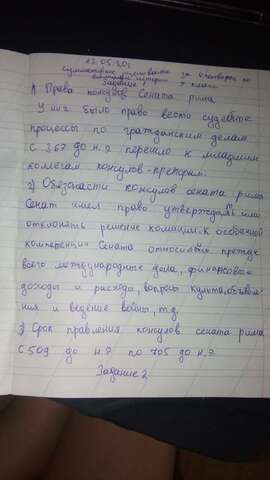 13.05.20г
Суммативное оценивание за 4 четверть по
всемирной истории
Задание 1 7 класс
1) Права консулов Сената рима
У них было право вести судебные
процессы по гражданским делам
С 367 до н.э перешло к младшим
коллегам консулов-преторам.
2) Обязаности консулов сената рима
Сенат имел право утверждать или
отклонять решение комиций. К особенной
компетенции Сената относились прежде
всего международные дела, финансовые
доходы и расходы, вопросы культа, объявле-
ния и ведение войны, т.д.
3) Срок правления консулов сената рима
С 509 до н.э по 105 до н.э
Задание 2